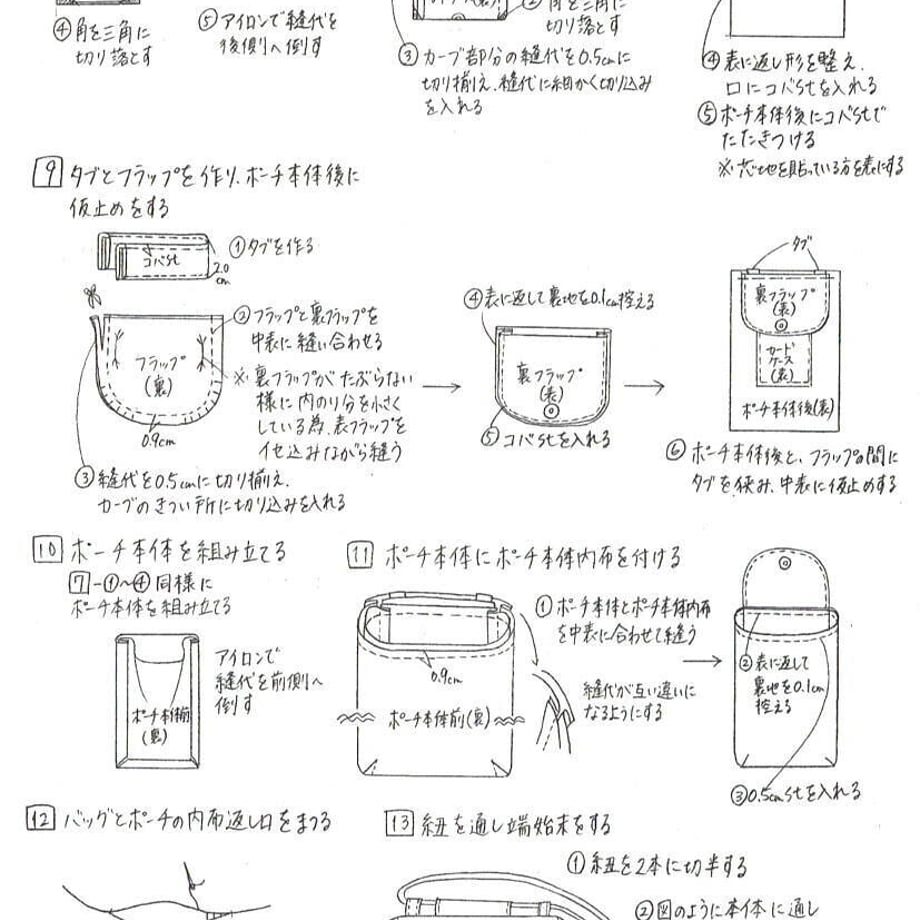 ④角を三角に
切り落とす
⑤アイロンで縫代を
後側へ倒す
角を三角に
切り落とす
③カーブ部分の縫代を0.5cmに
切り揃え、縫代に細かく切り込み
を入れる
④表に返し形を整え、
口にコバstを入れる
⑤ポーチ本体後にコバstで
たたきつける
※芯地を貼っている方を表にする
9 タブとフラップを作り、ポーチ本体後に
仮止めをする
①タブを作る
コバst
2.0
cm
②フラップと裏フラップを
中表に縫い合わせる
※裏フラップがたぶらない
様に内のり分を小さく
している為、表フラップを
イセ込みながら縫う
フラップ
(裏)
0.9cm
③縫代を0.5cmに切り揃え、
カーブのきつい所に切り込みを入れる
④表に返して裏地を0.1cm控える
裏フラップ
(表)
⑤コバstを入れる
タブ
裏フラップ
(表)
カード
ケース
(表)
ポーチ本体後(表)
⑥ポーチ本体後と、フラップの間に
タブを挟み、中表に仮止めする
10 ポーチ本体を組み立てる
7-①~④同様に
ポーチ本体を組み立てる
アイロンで
縫代を前側へ
倒す
ポーチ本体前
(裏)
11 ポーチ本体にポーチ本体内布を付ける
①ポーチ本体とポーチ本体内布
を中表に合わせて縫う
0.9cm
縫代が互い違いに
なるようにする
ポーチ本体前(裏)
②表に返して
裏地を0.1cm
控える
③0.5cmstを入れる
12 バッグとポーチの内布返し口をまつる
13 紐を通し端始末をする
①紐を2本に切半する
②図のように本体に通し